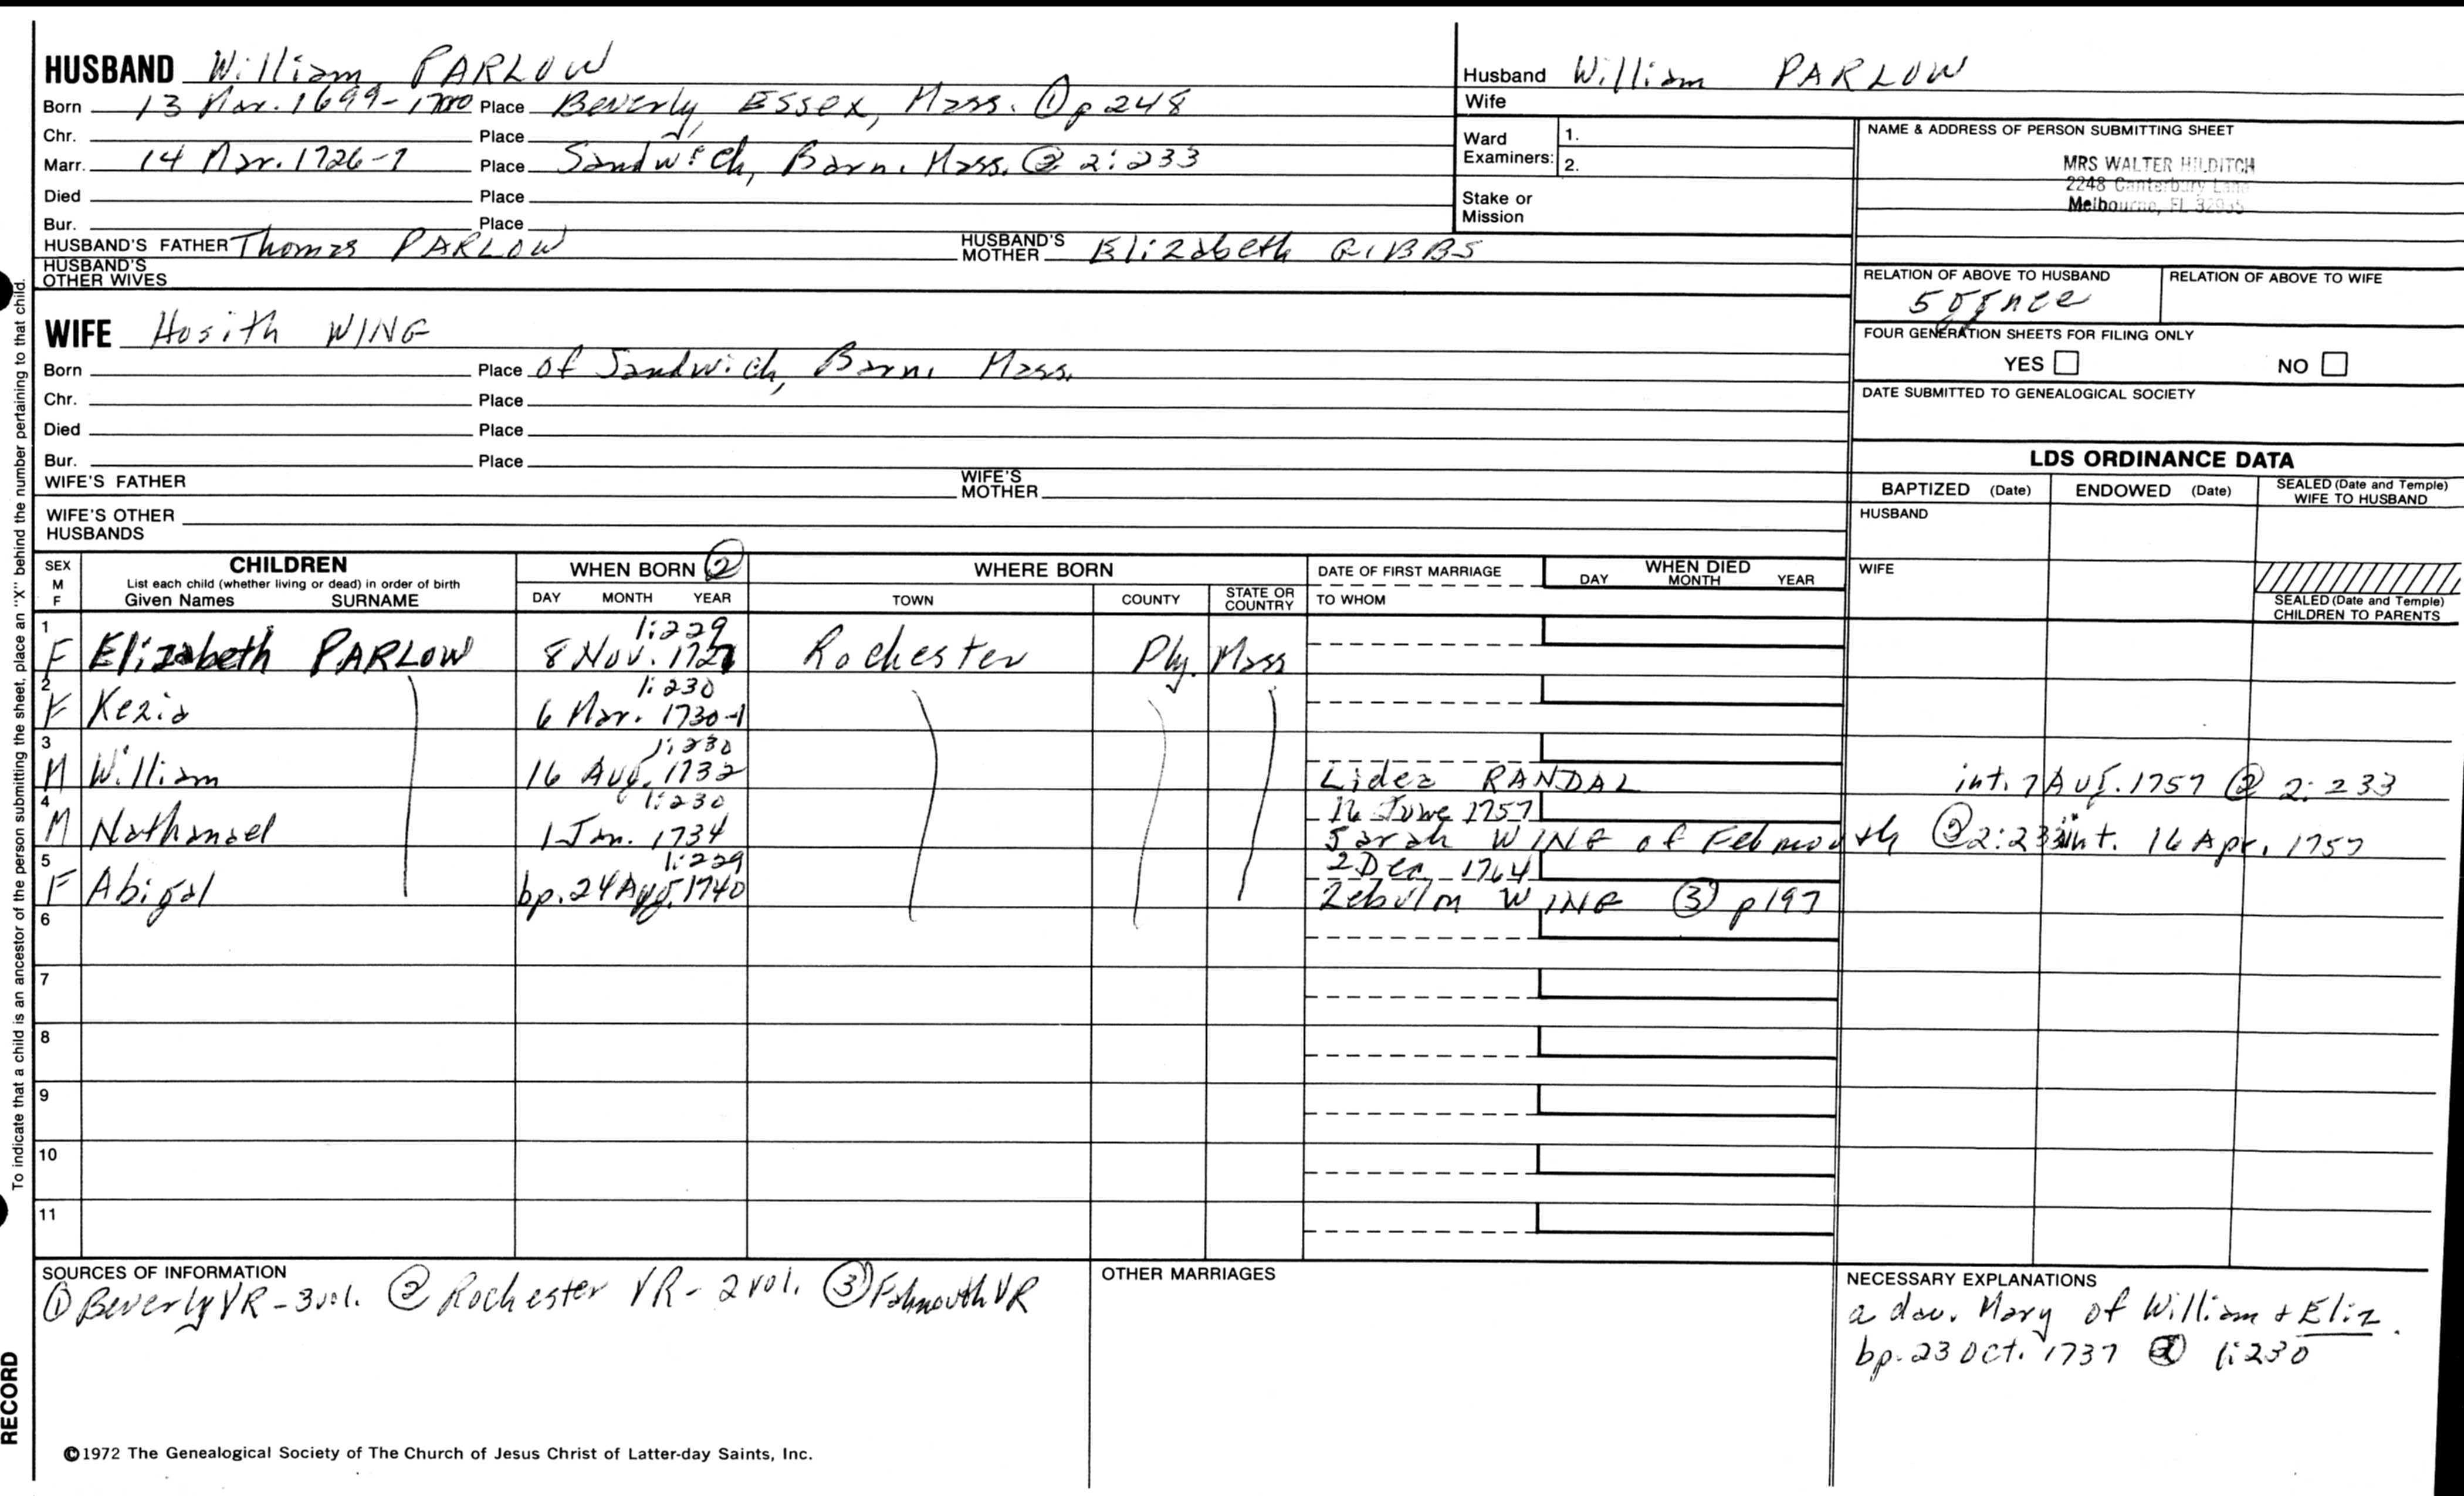 HUSBAND William PARLOW
Born 13 Mar. 1699-1700 Place Beverly, Essex, Mass. ① p 248
Chr. Place
Marr. 14 Mar. 1726-7 Place Sandwich, Barn. Mass. ② 2:233
Died Place
Bur. Place
HUSBAND'S FATHER Thomas PARLOW HUSBAND'S MOTHER Elizabeth GIBBS
HUSBAND'S OTHER WIVES
WIFE Hosith WING
Born Place of Sandwich, Barn. Mass.
Chr. Place
Died Place
Bur. Place
WIFE'S FATHER WIFE'S MOTHER
WIFE'S OTHER HUSBANDS
Husband William PARLOW
Wife
Ward Examiners: 1.
2.
Stake or Mission
NAME & ADDRESS OF PERSON SUBMITTING SHEET
MRS WALTER HILDITCH
2248 Canterbury Lane
Melbourne, FL 32935
RELATION OF ABOVE TO HUSBAND RELATION OF ABOVE TO WIFE
5 ggnce
FOUR GENERATION SHEETS FOR FILING ONLY
YES NO
DATE SUBMITTED TO GENEALOGICAL SOCIETY
LDS ORDINANCE DATA
BAPTIZED (Date) ENDOWED (Date) SEALED (Date and Temple) WIFE TO HUSBAND
HUSBAND
WIFE
SEALED (Date and Temple) CHILDREN TO PARENTS
SEX M F CHILDREN WHEN BORN ② WHERE BORN DATE OF FIRST MARRIAGE WHEN DIED
List each child (whether living or dead) in order of birth
Given Names SURNAME DAY MONTH YEAR TOWN COUNTY STATE OR COUNTRY TO WHOM DAY MONTH YEAR
1 1:229
F Elizabeth PARLOW 8 Nov. 1727 Rochester Ply. Mass
2 1:230
F Kezia 6 Mar. 1730-1
3 1:230
M William 16 Aug. 1732 Lidea RANDAL int. 7 Aug. 1757 ② 2:233
4 1:230 16 June 1757
M Nathanael 1 Jan. 1734 Sarah WING of Felmouth ② 2:233 int. 16 Apr. 1757
5 1:229 2 Dec. 1764
F Abigal bp. 24 Aug. 1740 Zebulon WING ③ p197
6
7
8
9
10
11
SOURCES OF INFORMATION
① Beverly VR - 3 vol. ② Rochester VR - 2 vol. ③ Falmouth VR
OTHER MARRIAGES
NECESSARY EXPLANATIONS
a dau. Mary of William + Eliz.
bp. 23 Oct. 1737 ② 1:230
©1972 The Genealogical Society of The Church of Jesus Christ of Latter-day Saints, Inc.
To indicate that a child is an ancestor of the person submitting the sheet, place an "X" behind the number pertaining to that child.
RECORD